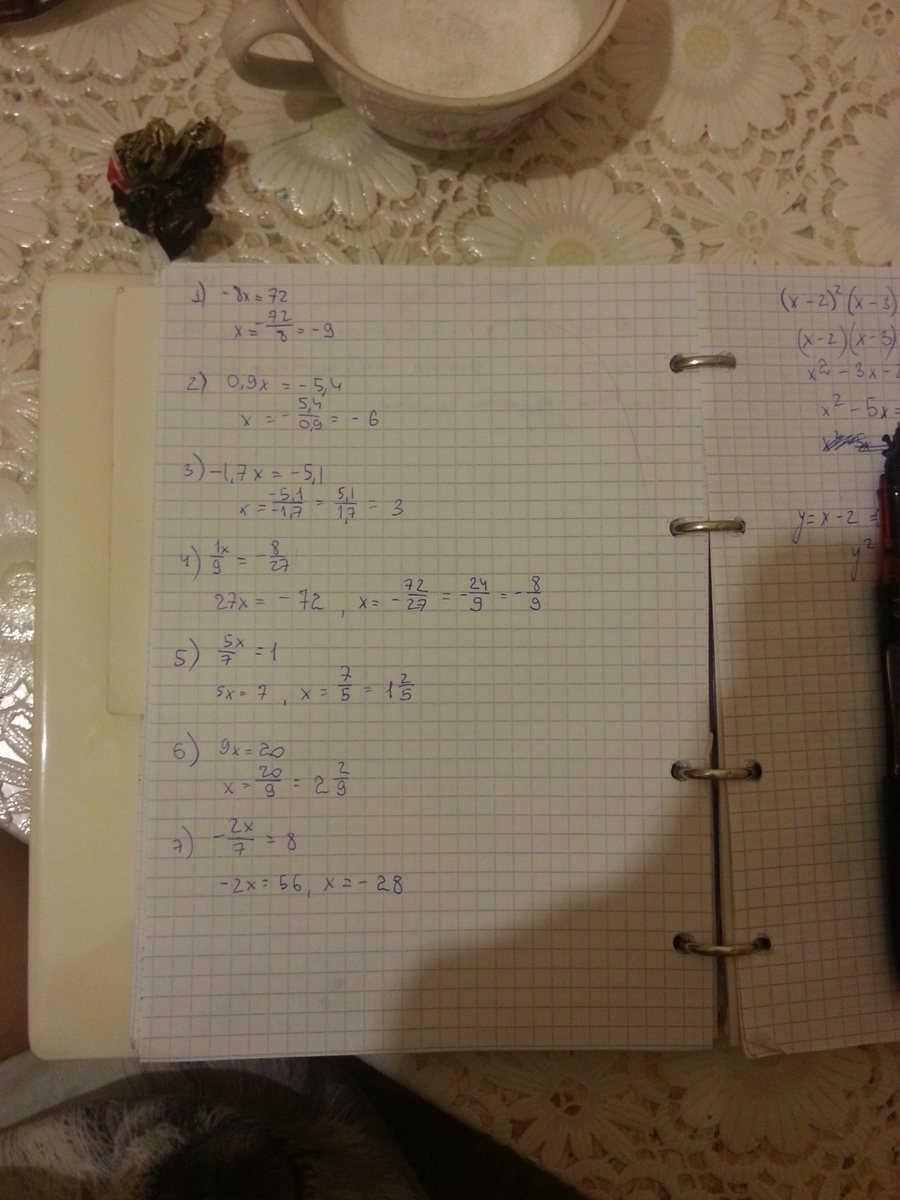 1) -8x = 72
x = -72/8 = -9
2) 0,9x = -5,4
x = -5,4/0,9 = -6
3) -1,7x = -5,1
x = -5,1/-1,7 = 5,1/1,7 = 3
4) 1x/9 = -8/27
27x = -72, x = -72/27 = -24/9 = -8/9
5) 5x/7 = 1
5x = 7, x = 7/5 = 1 2/5
6) 9x = 20
x = 20/9 = 2 2/9
7) -2x/7 = 8
-2x = 56, x = -28
(x-2)² (x-3)
(x-2)(x-3)
x² - 3x - 2
x² - 5x =
y = x - 2 =
y²